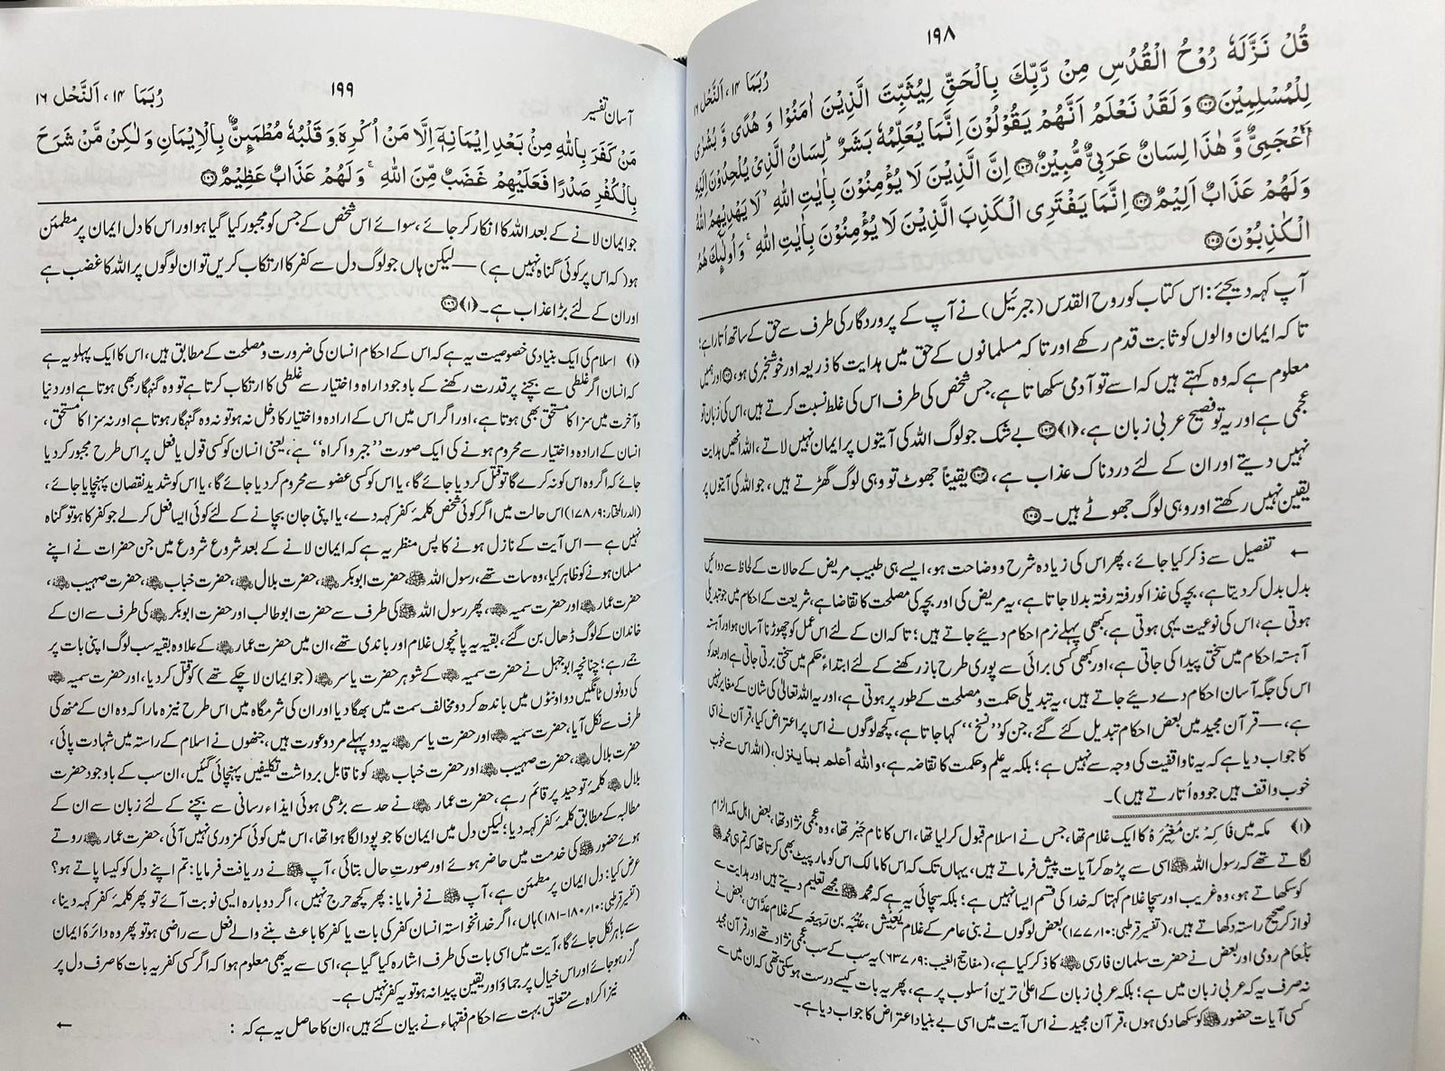 ۱۹۸
رُبَمَا ۱۴، اَلنَّحْل ۱۶
قُلْ نَزَّلَهٗ رُوْحُ الْقُدُسِ مِنْ رَّبِّكَ بِالْحَقِّ لِيُثَبِّتَ الَّذِيْنَ اٰمَنُوْا وَ هُدًى وَّ بُشْرٰى
لِلْمُسْلِمِيْنَ۝ وَ لَقَدْ نَعْلَمُ اَنَّهُمْ يَقُوْلُوْنَ اِنَّمَا يُعَلِّمُهٗ بَشَرٌ ؕ لِسَانُ الَّذِيْ يُلْحِدُوْنَ اِلَيْهِ
اَعْجَمِيٌّ وَّ هٰذَا لِسَانٌ عَرَبِيٌّ مُّبِيْنٌ۝ اِنَّ الَّذِيْنَ لَا يُؤْمِنُوْنَ بِاٰيٰتِ اللّٰهِ ۙ لَا يَهْدِيْهِمُ اللّٰهُ
وَ لَهُمْ عَذَابٌ اَلِيْمٌ۝ اِنَّمَا يَفْتَرِى الْكَذِبَ الَّذِيْنَ لَا يُؤْمِنُوْنَ بِاٰيٰتِ اللّٰهِ ۚ وَ اُولٰٓئِكَ هُمُ
الْكٰذِبُوْنَ۝
آپ کہہ دیجئے : اس کتاب کو روح القدس (جبرئیل) نے آپ کے پروردگار کی طرف سے حق کے ساتھ اُتارا ہے ؛
تا کہ ایمان والوں کو ثابت قدم رکھے اور تا کہ مسلمانوں کے حق میں ہدایت کا ذریعہ اور خوشخبری ہو، ۝ اور ہمیں
معلوم ہے کہ وہ کہتے ہیں کہ اسے تو آدمی سکھاتا ہے، جس شخص کی طرف اس کی غلط نسبت کرتے ہیں، اس کی زبان تو
عجمی ہے اور یہ تو فصیح عربی زبان ہے، (۱) ۝ بے شک جو لوگ اللہ کی آیتوں پر ایمان نہیں لاتے، اللہ انھیں ہدایت
نہیں دیتے اور ان کے لئے دردناک عذاب ہے، ۝ یقیناً جھوٹ تو وہی لوگ گھڑتے ہیں، جو اللہ کی آیتوں پر
یقین نہیں رکھتے اور وہی لوگ جھوٹے ہیں۔ ۝
← تفصیل سے ذکر کیا جائے، پھر اس کی زیادہ شرح و وضاحت ہو، ایسے ہی طبیب مریض کے حالات کے لحاظ سے دوائیں
بدل بدل کر دیتا ہے، بچہ کی غذا کو رفتہ رفتہ بدلا جاتا ہے، یہ مریض کی اور بچہ کی مصلحت کا تقاضا ہے، شریعت کے احکام میں جو تبدیلی
ہوتی ہے، اس کی نوعیت یہی ہوتی ہے، کبھی پہلے نرم احکام دیئے جاتے ہیں ؛ تا کہ ان کے لئے اس عمل کو چھوڑنا آسان ہو اور آہستہ
آہستہ احکام میں سختی پیدا کی جاتی ہے، اور کبھی کسی برائی سے پوری طرح باز رکھنے کے لئے ابتداءً حکم میں سختی برتی جاتی ہے اور بعد کو
اس کی جگہ آسان احکام دے دیئے جاتے ہیں، یہ تبدیلی حکمت و مصلحت کے طور پر ہوتی ہے، اور یہ اللہ تعالیٰ کی شان کے مغایر نہیں
ہے، —— قرآن مجید میں بعض احکام تبدیل کئے گئے، جن کو ’’نسخ‘‘ کہا جاتا ہے، کچھ لوگوں نے اس پر اعتراض کیا، قرآن نے اسی
کا جواب دیا ہے کہ یہ ناواقفیت کی وجہ سے نہیں ہے ؛ بلکہ یہ علم و حکمت کا تقاضہ ہے، واللّٰہ أعلم بما ینزل، (اللہ اس سے خوب
خوب واقف ہیں جو وہ اُتارتے ہیں)۔
(۱) مکہ میں فَاکِہْ بن مُغِیْرَہ کا ایک غلام تھا، جس نے اسلام قبول کر لیا تھا، اس کا نام جَبْر تھا، وہ عجمی نژاد تھا، بعض اہل مکہ الزام
لگاتے تھے کہ رسول اللہ ﷺ اسی سے پڑھ کر آیات پیش فرماتے ہیں، یہاں تک کہ اس کا مالک اس کو مار پیٹ بھی کرتا تھا کہ تم ہی محمد ﷺ
کو سکھاتے ہو، وہ غریب اور سچا غلام کہتا کہ خدا کی قسم ایسا نہیں ہے ؛ بلکہ سچائی یہ ہے کہ محمد ﷺ مجھے تعلیم دیتے ہیں اور ہدایت سے
نواز کر صحیح راستہ دکھاتے ہیں، (تفسیر قرطبی: ۱۷۷/۱۰) بعض لوگوں نے بنی عامر کے غلام یَعِیْش، عُتْبَہ بن رَبِیعَہ کے غلام عَدَّاس، بعض نے
بَلْعَام رومی اور بعض نے حضرت سلمان فارسی ؓ کا ذکر کیا ہے، (مفاتیح الغیب: ۶۳۷/۹) یہ سب کے سب عجمی نژاد تھے اور قرآن مجید
نہ صرف یہ کہ عربی زبان میں ہے ؛ بلکہ عربی زبان کے اعلیٰ ترین اُسلوب پر ہے، پھر یہ بات کیسے درست ہو سکتی تھی کہ ان میں سے
کسی آیات حضور ﷺ کو سکھا دی ہوں، قرآن مجید نے اس آیت میں اسی بے بنیاد اعتراض کا جواب دیا ہے۔
آسان تفسیر
۱۹۹
رُبَمَا ۱۴، اَلنَّحْل ۱۶
مَنْ كَفَرَ بِاللّٰهِ مِنْۢ بَعْدِ اِيْمَانِهٖٓ اِلَّا مَنْ اُكْرِهَ وَ قَلْبُهٗ مُطْمَىِٕنٌّۢ بِالْاِيْمَانِ وَ لٰكِنْ مَّنْ شَرَحَ
بِالْكُفْرِ صَدْرًا فَعَلَيْهِمْ غَضَبٌ مِّنَ اللّٰهِ ۚ وَ لَهُمْ عَذَابٌ عَظِيْمٌ۝
جو ایمان لانے کے بعد اللہ کا انکار کر جائے، سوائے اس شخص کے جس کو مجبور کیا گیا ہو اور اس کا دل ایمان پر مطمئن
ہو (کہ اس پر کوئی گناہ نہیں ہے) —— لیکن ہاں جو لوگ دل سے کفر کا ارتکاب کریں تو ان لوگوں پر اللہ کا غضب ہے
اور ان کے لئے بڑا عذاب ہے۔ (۱) ۝
(۱) اسلام کی ایک بنیادی خصوصیت یہ ہے کہ اس کے احکام انسان کی ضرورت و مصلحت کے مطابق ہیں، اس کا ایک پہلو یہ ہے
کہ انسان اگر غلطی سے بچنے پر قدرت رکھنے کے باوجود ارادہ و اختیار سے غلطی کا ارتکاب کرتا ہے تو وہ گنہگار بھی ہوتا ہے اور دنیا
و آخرت میں سزا کا مستحق بھی ہوتا ہے، اور اگر اس میں اس کے ارادہ و اختیار کا دخل نہ ہو تو نہ وہ گنہگار ہوتا ہے اور نہ سزا کا مستحق،
انسان کے ارادہ و اختیار سے محروم ہونے کی ایک صورت ’’جبر و اکراہ‘‘ ہے، یعنی انسان کو کسی قول یا فعل پر اس طرح مجبور کر دیا
جائے کہ اگر وہ اس کو نہ کرے گا تو قتل کر دیا جائے گا، یا اس کو کسی عضو سے محروم کر دیا جائے گا، یا اس کو شدید نقصان پہنچایا جائے،
(الدر المختار: ۱۷۸/۹) اس حالت میں اگر کوئی شخص کلمۂ کفر کہہ دے، یا اپنی جان بچانے کے لئے کوئی ایسا فعل کر لے جو کفر کا ہو تو گناہ
نہیں ہے —— اس آیت کے نازل ہونے کا پس منظر یہ ہے کہ ایمان لانے کے بعد شروع شروع میں جن حضرات نے اپنے
مسلمان ہونے کو ظاہر کیا، وہ سات تھے، رسول اللہ ﷺ، حضرت ابوبکر ؓ، حضرت بلال ؓ، حضرت خباب ؓ، حضرت صہیب ؓ،
حضرت عمار ؓ اور حضرت سمیہ ؓ، پھر رسول اللہ ﷺ کی طرف سے حضرت ابوطالب اور حضرت ابوبکر ؓ کی طرف سے ان کے
خاندان کے لوگ ڈھال بن گئے، بقیہ یہ پانچوں غلام اور باندی تھے، ان میں حضرت عمار ؓ کے علاوہ بقیہ سب لوگ اپنی بات پر
جمے رہے ؛ چنانچہ ابوجہل نے حضرت سمیہ ؓ کے شوہر حضرت یاسر ؓ (جو ایمان لا چکے تھے) کو قتل کر دیا، اور حضرت سمیہ ؓ
کی دونوں ٹانگیں دو اونٹوں میں باندھ کر دو مخالف سمت میں بھگا دیا اور ان کی شرمگاہ میں اس طرح نیزہ مارا کہ وہ ان کے منھ کی
طرف سے نکل آیا، حضرت سمیہ ؓ اور حضرت یاسر ؓ یہ دو پہلے مرد و عورت ہیں، جنھوں نے اسلام کے راستہ میں شہادت پائی،
حضرت بلال ؓ، حضرت صہیب ؓ اور حضرت خباب ؓ کو ناقابل برداشت تکلیفیں پہنچائی گئیں، ان سب کے باوجود حضرت
بلال ؓ کلمۂ توحید پر قائم رہے، حضرت عمار ؓ نے حد سے بڑھی ہوئی ایذاء رسانی سے بچنے کے لئے زبان سے ان کے
مطالبہ کے مطابق کلمۂ کفر کہہ دیا ؛ لیکن دل میں ایمان کا جو پودا لگا ہوا تھا، اس میں کوئی کمزوری نہیں آئی، حضرت عمار ؓ روتے
ہوئے حضور ﷺ کی خدمت میں حاضر ہوئے اور صورتِ حال بتائی، آپ ﷺ نے دریافت فرمایا: تم اپنے دل کو کیسا پاتے ہو؟
عرض کیا: دل ایمان پر مطمئن ہے، آپ ﷺ نے فرمایا: پھر کچھ حرج نہیں، اگر دوبارہ ایسی نوبت آئے تو پھر کلمۂ کفر کہہ دینا،
(تفسیر قرطبی: ۱۸۰/۱۰-۱۸۱) ہاں، اگر خدانخواستہ انسان کفر کی بات یا کفر کا باعث بننے والے فعل سے راضی ہو تو پھر وہ دائرۂ ایمان
سے باہر نکل جائے گا، آیت میں اسی بات کی طرف اشارہ کیا گیا ہے، اسی سے یہ بھی معلوم ہوا کہ اگر کسی کفریہ بات کا صرف دل پر
گزر ہو جائے اور اس خیال پر جماؤ اور یقین پیدا نہ ہو تو یہ کفر نہیں ہے۔
نیز اکراہ سے متعلق بہت سے احکام فقہاء نے بیان کئے ہیں، ان کا حاصل یہ ہے کہ :
←